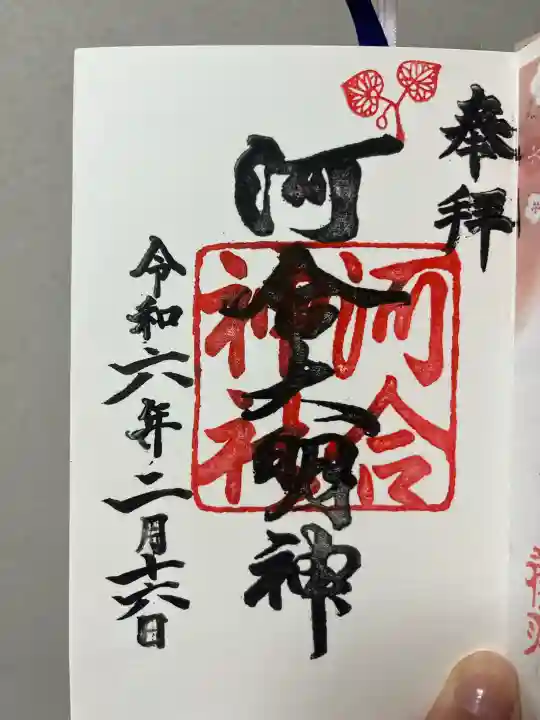 奉拝
河合大明神
河合
神社
令和六年二月十六日